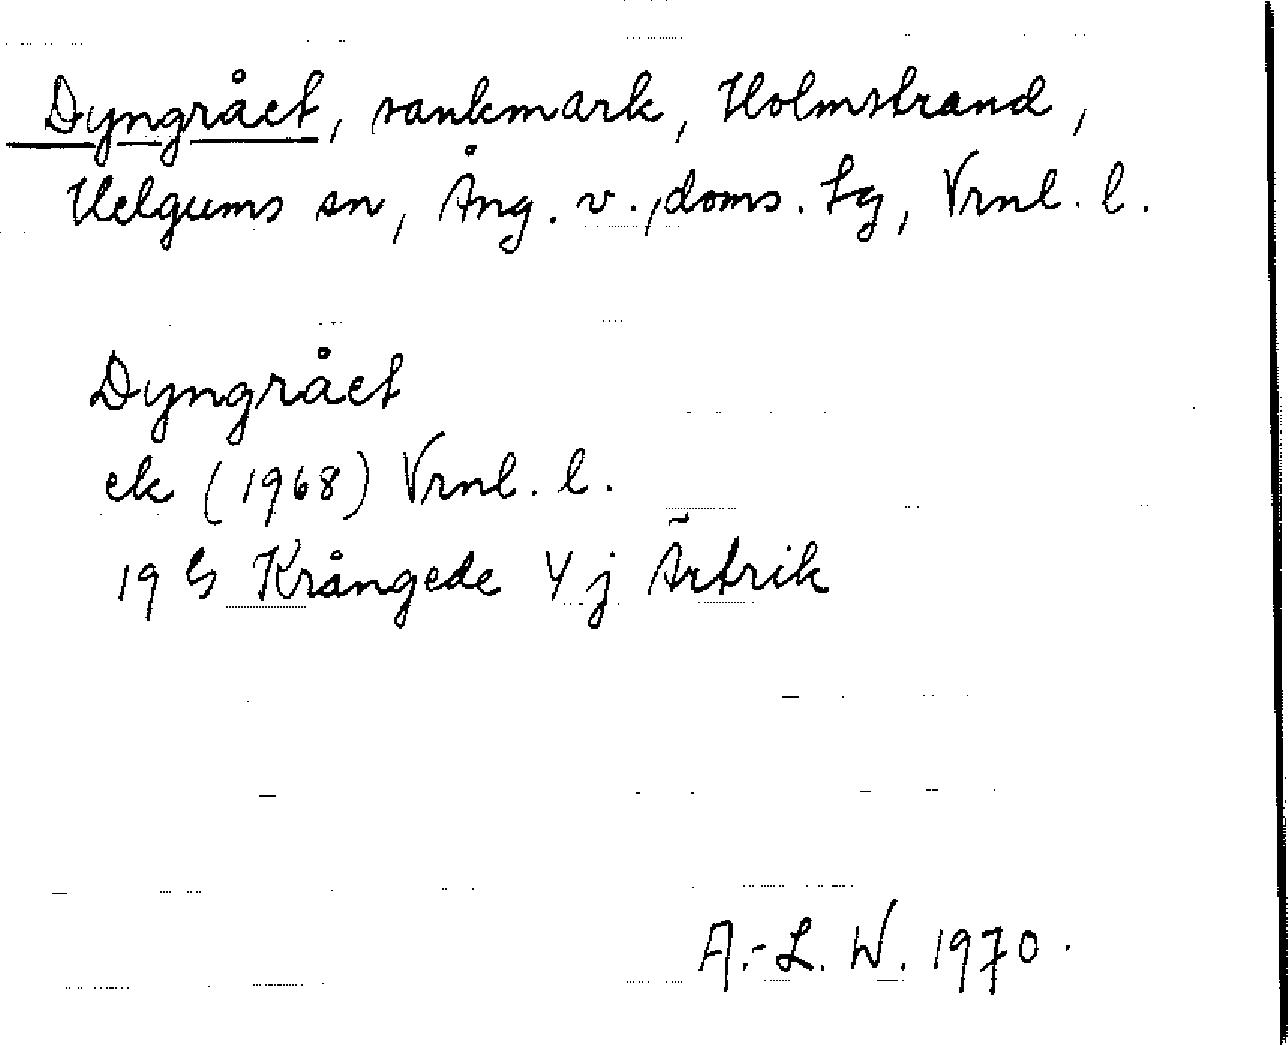 Dyngrået, sankmark, Holmstrand,
Helgums sn, Ång. v., doms. tg, Vrnl. l.
Dyngrået
ek (1968) Vrnl. l.
19 G Krångede 4 j Ärtrik
A.-L. W. 1970.